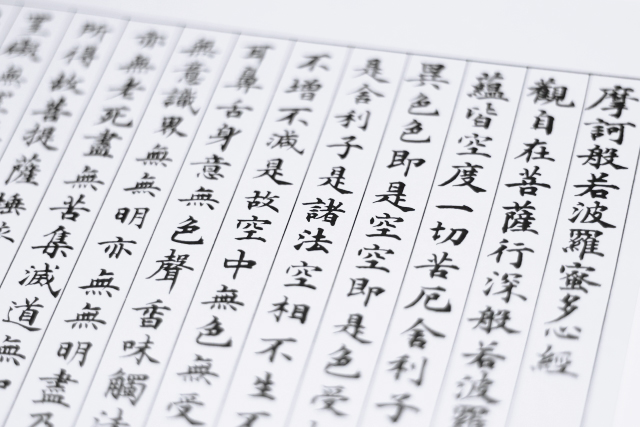 摩訶般若波羅蜜多心經
觀自在菩薩行深般若波羅
蘊皆空度一切苦厄舍利子
異色色即是空空即是色受
是舍利子是諸法空相不生不
不增不滅是故空中無色無受
耳鼻舌身意無色聲香味觸法
無意識界無無明亦無無明盡乃
亦無老死盡無苦集滅道無
所得故菩提薩埵
罣礙無罣